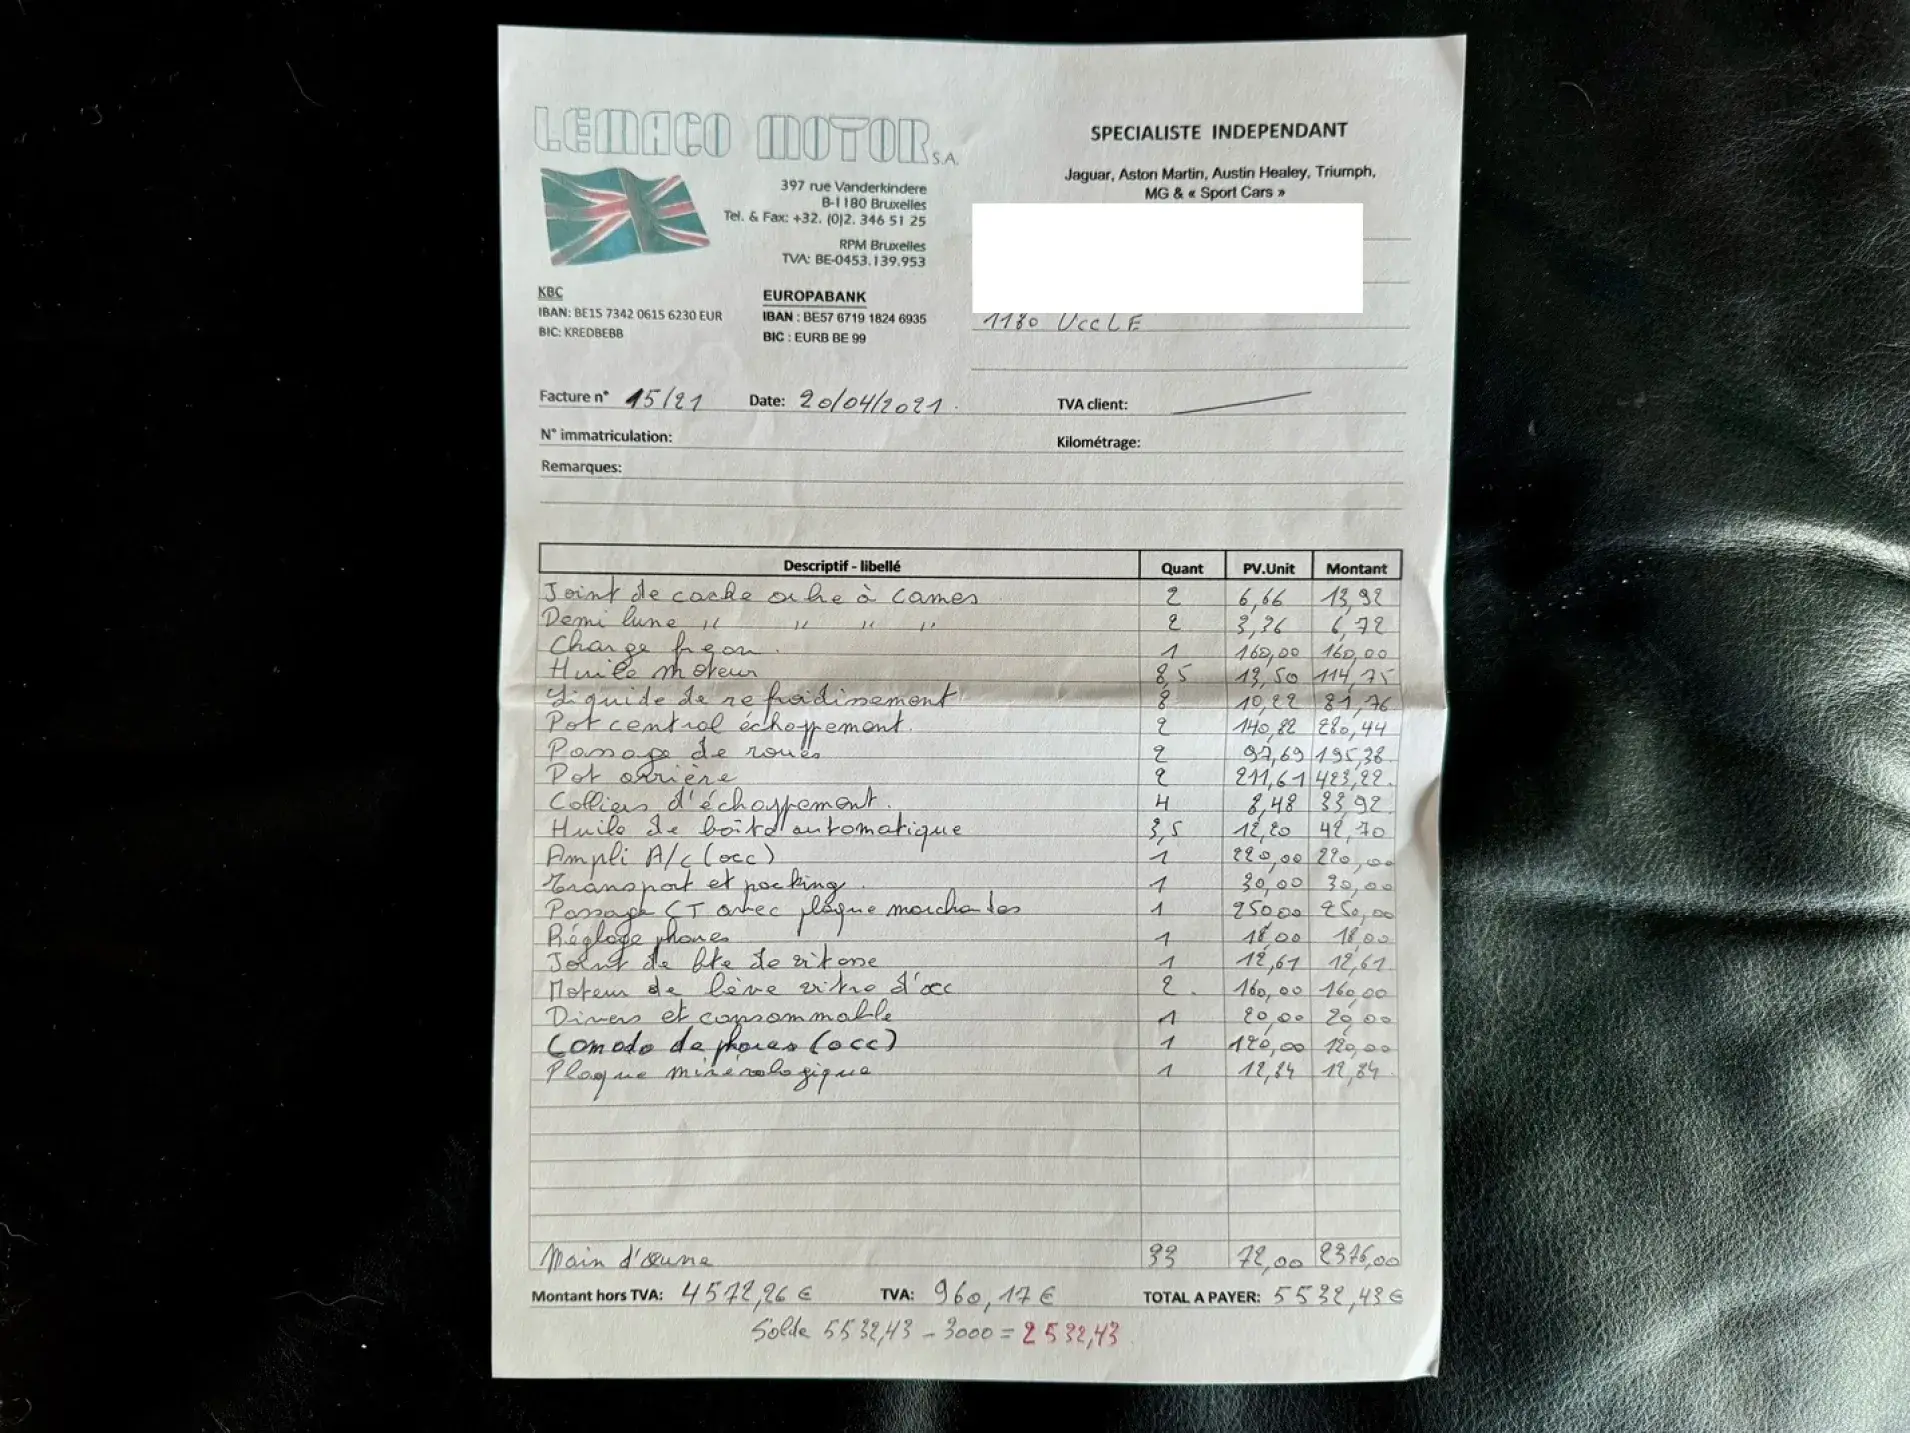 LEMACO MOTOR S.A.
397 rue Vanderkindere
B-1180 Bruxelles
Tel. & Fax: +32. (0)2. 346 51 25
RPM Bruxelles
TVA: BE-0453.139.953
KBC
IBAN: BE15 7342 0615 6230 EUR
BIC: KREDBEBB
EUROPABANK
IBAN : BE57 6719 1824 6935
BIC : EURB BE 99
SPECIALISTE INDEPENDANT
Jaguar, Aston Martin, Austin Healey, Triumph,
MG & « Sport Cars »
1180 UccLE
Facture n° 15/21 Date: 20/04/2021. TVA client:
N° immatriculation: Kilométrage:
Remarques:
Descriptif - libellé Quant PV.Unit Montant
Joint de cache arbre à cames 2 6,66 13,92
Demi lune " " " " 2 3,36 6,72
Charge freon. 1 160,00 160,00
Huile moteur 8,5 13,50 114,75
Liquide de refroidissement 8 10,22 81,76
Pot central échappement. 2 140,22 280,44
Passage de roues 2 97,69 195,38
Pot arrière 2 211,61 423,22.
Colliers d'échappement. 4 8,48 33,92
Huile de boîte automatique 3,5 12,20 42,70
Ampli A/c (occ) 1 220,00 220,00
Transport et packing. 1 30,00 30,00
Passage CT avec plaque marchandes 1 250,00 250,00
Réglage phares 1 18,00 18,00
Joint de bte de vitesse 1 12,61 12,61
Moteur de lève vitre d'occ 2. 160,00 160,00
Divers et consommable 1 20,00 20,00
Comodo de phares (occ) 1 120,00 120,00
Plaque minéralogique 1 12,84 12,84
Main d'œuvre 33 72,00 2376,00
Montant hors TVA: 4572,26 € TVA: 960,17 € TOTAL A PAYER: 5532,43 €
Solde 5532,43 - 3000 = 2532,43